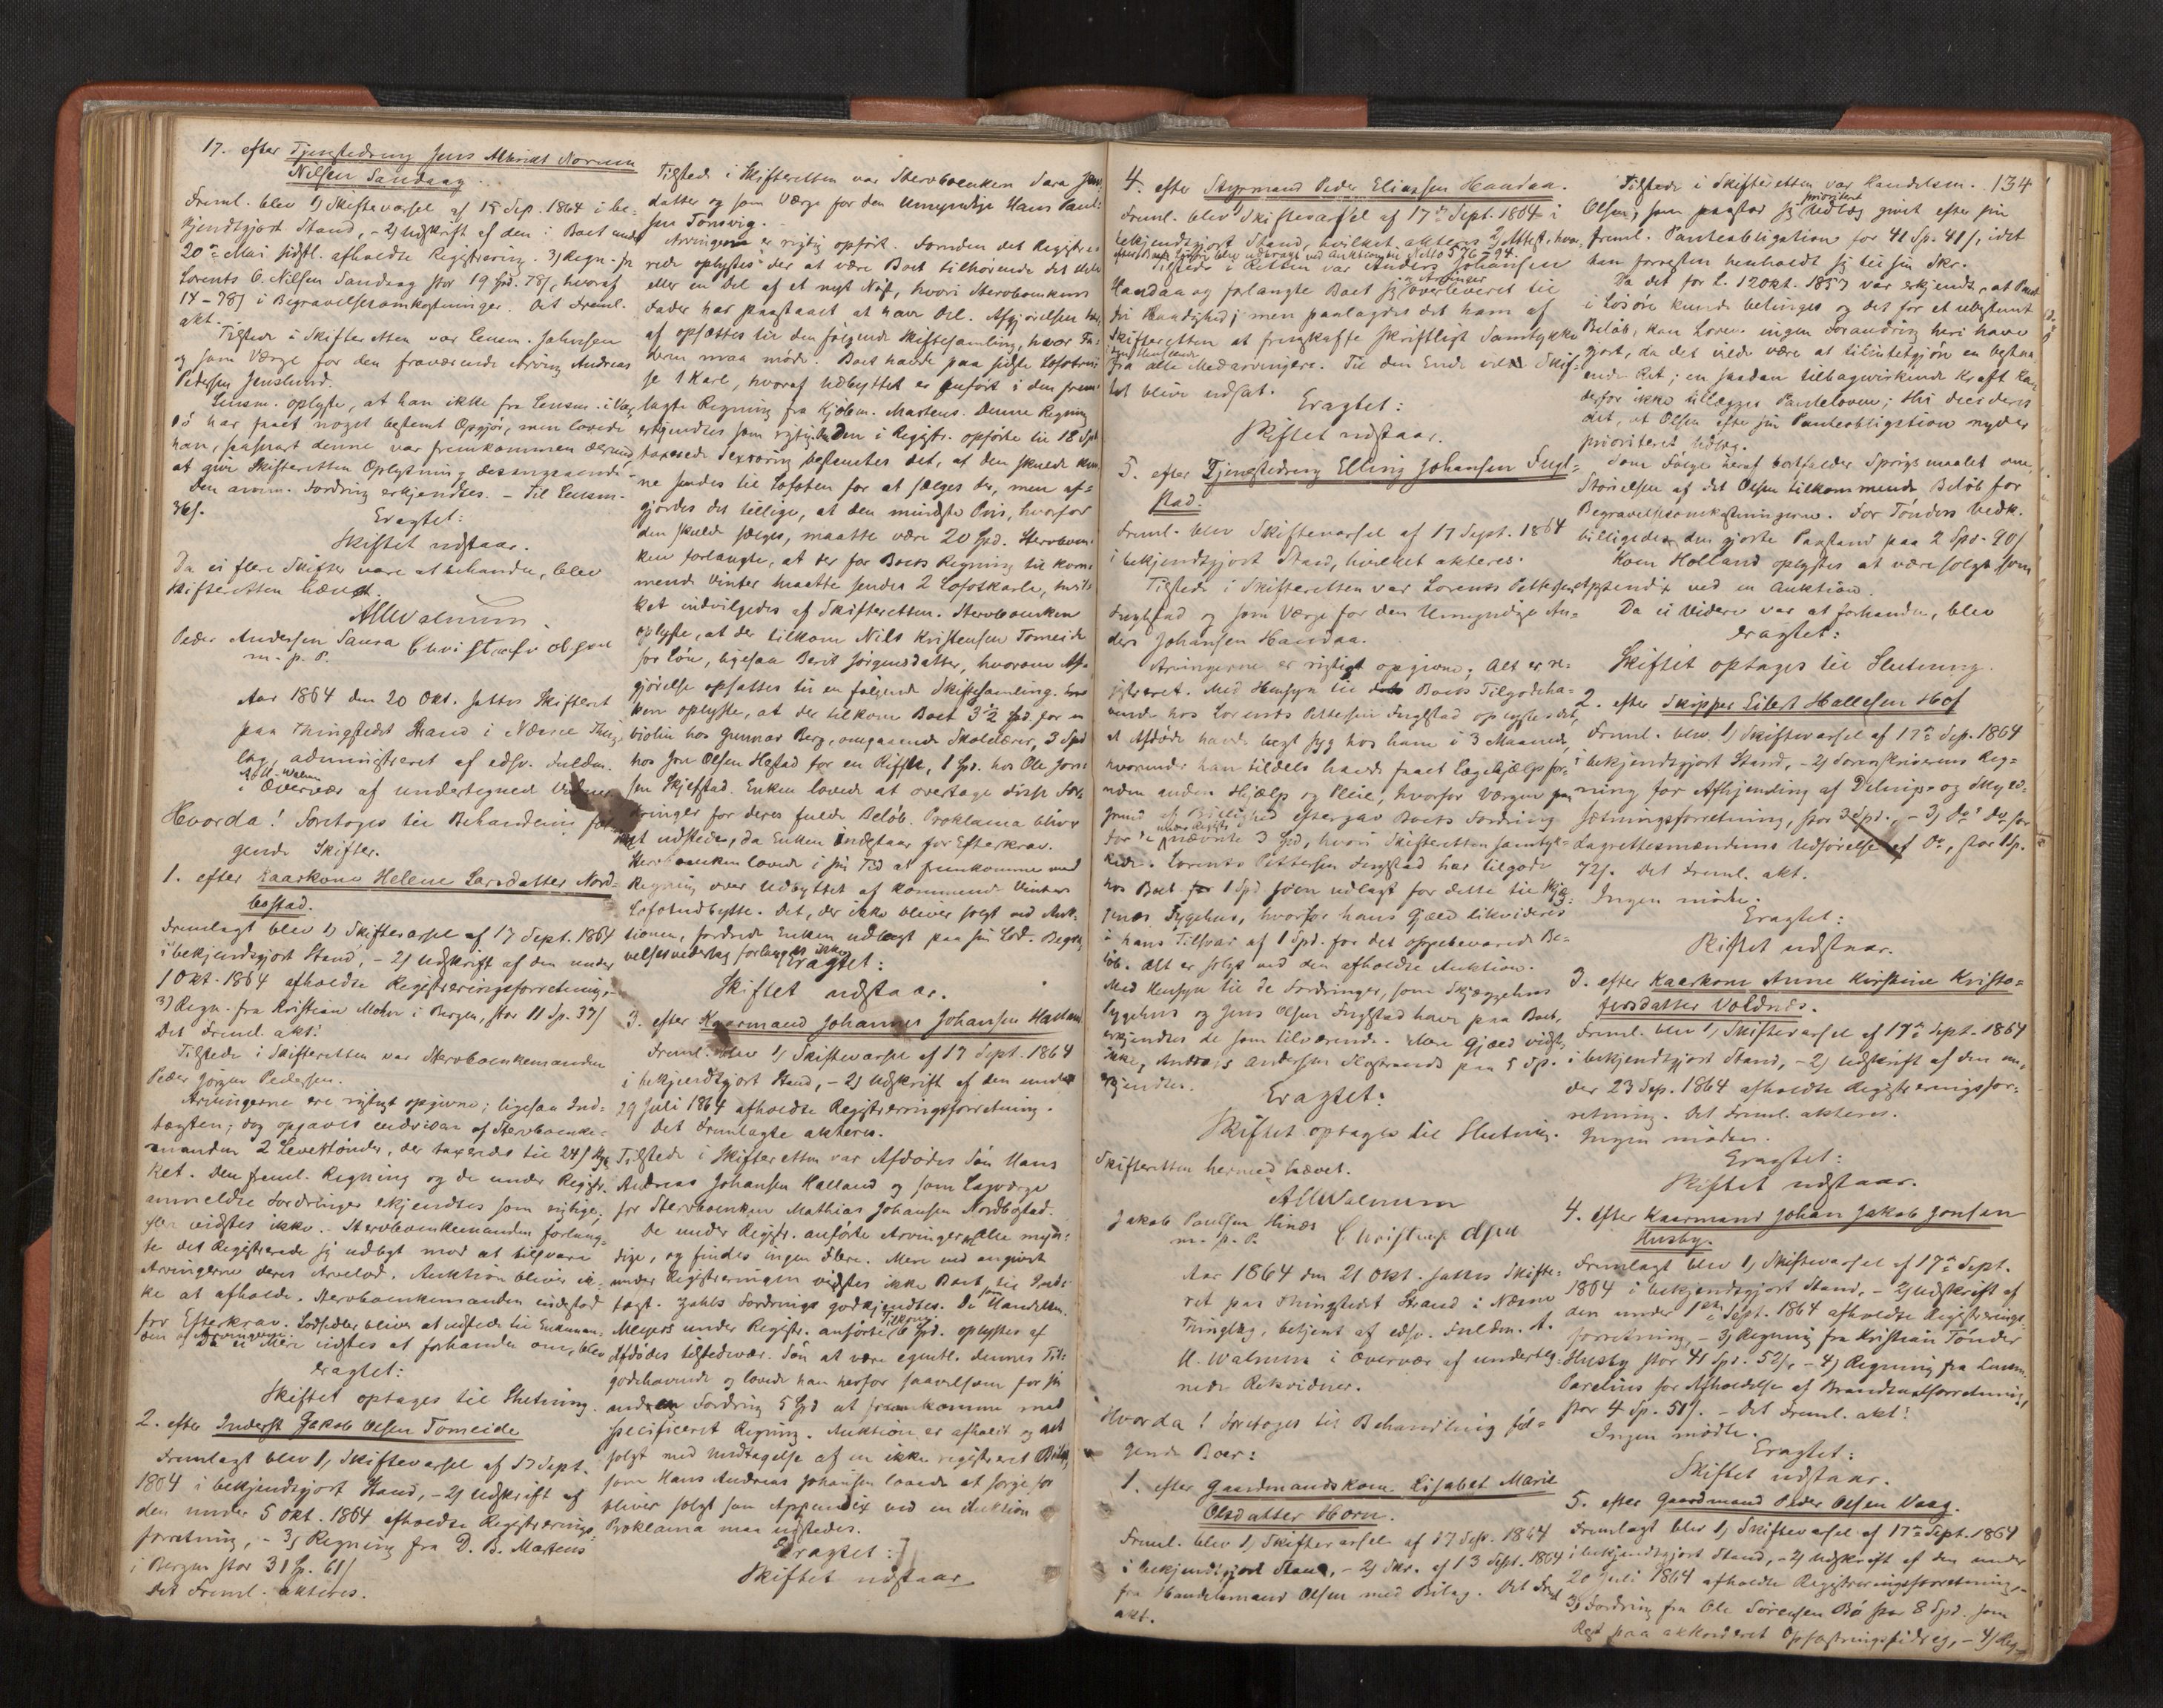 17. efter Tjenestedreng Jens Albrigt Norum
Nilsen Sandaag.
Freml. blev 1) Skiftevarsel af 15 Sep. 1864 i be-
kjendtgjort Stand, - 2) Udskrift af den i Boet under
20de Mai sidstl. afholdte Registrering. 3) Regn. fra
Lorents C. Nilsen Sandaag stor 19 Spd. 78 s, hvoraf
14 - 78 s i Begravelsesomkostninger. Det Freml.
akt.
Tilstede i Skifteretten var Lensm. Johnsen
og som Værge for den fraværende Arving Andreas
Pedersen
Lensm. oplyste, at han ikke fra Lensm. i Væ-
rö har faaet noget bestemt Opgjör, men lovede
han, saasnart denne var fremkommen
at give Skifteretten Oplysning desangaaende.
Den anm. Fordring erkjendtes. - Til Lensm.
36 s.
Eragtet:
Skiftet udstaar.
Da ei flere Skifter vare at behandle, blev
Skifteretten hævet.
AUWalnum.
Peder Andersen Sausa Christofer Olsen
m. p. P.
Aar 1864 den 20 Okt. sattes Skifteret
paa Thingstedet Strand i Næsne Thing-
lag, administreret af edsv. Fuldm.
A. U. Walnum
i Overvær af undertegnede Vidner
Hvorda! Foretoges til Behandling föl-
gende Skifter.
1. efter Kaarkone Helene Larsdatter Nord-
bostad.
Fremlagt blev 1) Skiftevarsel af 17 Sept. 1864
i bekjendtgjort Stand, - 2) Udskrift af den under
1 Okt. 1864 afholdte Registreringsforretning, -
3) Regn. fra Kristian Mohn i Bergen, stor 11 Sp. 37 s
Det Freml. akt:
Tilstede i Skifteretten var Stervboenkemanden
Peder Jörgen Pedersen.
Arvingerne ere rigtigt opgivne; ligesaa Ind-
tægten; dog opgaves endvidere af Stervboenke-
manden 2 Levertönder, der taxeredes til 24 s Styk-
ket. Den freml. Regning og de under Registr.
anmeldte Fordringer erkjendtes som rigtige;
flere vidstes ikke. Stervboenkemanden forlang-
te det Registrerede sig udlagt mod at tilsvare
Arvingerne deres Arvelod. Auktion bliver ik-
ke at afholde. Stervboenkemanden indestod
for Efterkrav. Lodsedler bliver at udstede til Enkeman-
den og Arvingerne.
Da ei Mere vidstes at forhandle om, blev
eragtet:
Skiftet optages til Slutning.
2. efter Inderst Jakob Olsen Tomeide
Fremlagt blev 1) Skiftevarsel af 17 Sept.
1864 i bekjendtgjort Stand, - 2) Udskrift af
den under 5 Okt. 1864 afholdte Registrerings-
forretning, - 3) Regning fra D. B. Martens
i Bergen stor 31 Sp. 61 s
Det Freml. akteres.
Tilstede i Skifteretten var Stervboenken Sara Jens-
datter og som Værge for den Umyndige Hans Paul-
sen Tonsvig.
Arvingerne er rigtig opfört. Foruden det Registre-
rede oplystes der at være Boet tilhörende det Hele
eller en Del af et nyt Nöst, hvori Stervboenkens
Fader har paastaaet at have Del. Afgjörelsen her-
af opsættes til den fölgende Skiftesamling, hvor Fa-
deren maa möde. Boet havde paa sidste Lofotrei-
se 1 Karl, hvoraf Udbyttet er anfört i den frem-
lagte Regning fra Kjöbm. Martens. Denne Regning
erkjendtes som rigtig. Den i Registr. opförte til 18 Spd
taxerede Sexæring bestemtes det, at den skulde kun-
ne sendes til Lofoten for at sælges der, men af-
gjordes det tillige, at den mindste Pris, hvorfor
den skulde sælges, maatte være 20 Spd. Stervboen-
ken forlangte, at der for Boets Regning til kom-
mende Vinter maatte sendes 2 Lofotskarle, hvil-
ket indvilgedes af Skifteretten. Stervboenken
oplyste, at der tilkom Nils Kristensen Tomeide
for Lön, ligesaa Berit Jörgensdatter, hvorom Af-
gjörelse opsattes til en fölgende Skiftesamling.
oplyste, at der tilkom Boet 3 1/2 Spd. for en
Violin hos Gunnar Berg, omgaaende Skolelærer, 3 Spd
hos Jon Olsen Hestad for en Riffel, 1 Spd. hos Ole Jon-
sen Skjelstad. Enken lovede at overtage disse For-
dringer for deres fulde Belöb. Proklama bliver
at udstede, da Enken indstaar for Efterkrav.
Stervboenken lovede i sin Tid at fremkomme med
Regning over Udbyttet af kommende Vinters
Lofotudbytte. Det, der ikke bliver solgt ved Auk-
tionen, fordrede Enken udlagt paa sin Lod. Begra-
velsesvederlag forlanges ikke.
Eragtet:
Skiftet udstaar.
3. efter Kaarmand Johannes Johansen Halland
Freml. blev 1) Skiftevarsel af 17 Sept. 1864
i bekjendtgjort Stand, - 2) Udskrift af den under
29 Juli 1864 afholdte Registreringsforretning.
Det Fremlagte akteres.
Tilstede i Skifteretten var Afdödes Sön Hans
Andreas Johansen Halland og som Lagværge
for Stervboenken Mathias Johansen Nordbostad.
De under Registr. anförte Arvinger alle myn-
dige, og findes ingen Flere. Mere end angivet
under Registreringen vidstes ikke Boet til Ind-
tægt. Zahls Fordring godkjendtes. De som Handelsm.
Meyers under Registr. anförte 6 Spd. oplystes af
Afdödes tilstedevær. Sön at være egentl. dennes Til-
godehavende og lovede han herfor saavelsom for sin
anden Fordring 5 Spd at fremkomme med
specificeret Regning. Auktion er afholdt og alt
solgt med Undtagelse af en ikke registreret
som Hans Andreas Johansen lovede at sörge for
bliver solgt som Appendix ved en Auktion
Proklama maa udstedes.
Eragtet:
Skiftet udstaar
4. efter Styrmand Peder Eliassen Haadaa.
Freml. blev 1) Skiftevarsel af 17de Sept. 1864 i
bekjendtgjort Stand, hvilket akteres 2) Attest, hvor-
efter Boets Eiendele blev udbragt ved Auktion til Netto 576 - 94.
Tilstede i Retten var Anders Johansen
Haadaa og forlangte Boet sig overleveret til
fri Raadighed; men paalagdes det ham af
Skifteretten at fremskaffe skriftligt Samtykke
i saa Henseende
fra alle Medarvingere. Til den Ende vil Skif-
tet blive udsat.
Eragtet:
Skiftet udstaar.
5. efter Tjenestedreng Elling Johansen Fugl-
stad.
Freml. blev Skiftevarsel af 17 Sept. 1864
i bekjendtgjort Stand, hvilket akteres.
Tilstede i Skifteretten var Lorents Pettersen
Fuglstad og som Værge for den Umyndige An-
ders Johansen Haadaa.
Arvingerne er rigtigt opgivne; Alt er re-
gistreret. Med Hensyn til Boets Tilgodeha-
vende hos Lorents Pettersen Fuglstad oplystes det,
at Afdöde havde ligget syg hos ham i 3 Maaneder,
hvorunder han tildels havde faaet Lægehjælp for-
uden anden Hjælp og Pleie, hvorfor Værgen paa
Grund af Billighed eftergav Boets Fordring
for de under Registr. nævnte 3 Spd, hvori Skifteretten samtyk-
kede. Lorents Pettersen Fuglstad har tilgode
hos Boet for 1 Spd som udlagt for dette til Skjæg-
gnæs Sygehus, hvorfor hans Gjæld likvideres
i hans Tilsvar af 1 Spd. for det oppebevarede Be-
löb. Alt er solgt ved den afholdte Auktion.
Med Hensyn til de Fordringer, som Skjæggenæs
Sygehus og Jens Olsen Fuglstad have paa Boet,
erkjendtes de som tilværende. Mere Gjæld vidstes
ikke, Andreas Andersen paa 5 Sp.
erkjendtes.
Eragtet:
Skiftet optages til Slutning.
Skifteretten hermed hævet.
AUWalnum
Jakob Paulsen Hinæs Christofer Olsen
m. p. P.
Aar 1864 den 21 Okt. sattes Skifte-
ret paa Thingstedet Strand i Næsne
Thinglag, betjent af edsv. Fuldm. A.
U. Walnum i Overvær af underteg-
nede Retsvidner.
Hvorda! Foretoges til Behandling föl-
gende Boer:
1. efter Gaardmandskone Lisabet Marie
Olsdatter Horn.
Freml. blev 1) Skiftevarsel af 17 Sept. 1864
i bekjendtgjort Stand, - 2) Skr. af 13 Sept. 1864
fra Handelsmand Olsen med Bilag. Det Freml.
akt.
134
Tilstede i Skifteretten var Handelsm.
Olsen, som paastod sig prioriteret Udlæg givet efter sin
freml. Panteobligation for 41 Sp. 41 s, idet
han forresten henholdt sig til sin Skr.
Da det för L. 12 Okt. 1857 var erkjendt, at Pant
i Lösöre kunde betinges og det for et ubestemt
Belöb, kan Loven ingen Forandring heri have
gjort, da det vilde være at tilintetgjöre en bestaa-
ende Ret; en saadan tilbagevirkende Kraft kan
derfor ikke tillægges Panteloven; Thi decideres
det, at Olsen efter sin Panteobligation nyder
prioriteret Udlæg.
Som Fölge heraf bortfalder Spörgsmaalet om
Störrelsen af det Olsen tilkommende Belöb for
Begravelsesomkostningerne. For Tönders Vedk.
billigedes den gjorte Paastand paa 2 Spd. 90 s
Koen Holland oplystes at være solgt som
Appendix ved en Auktion.
Da ei Videre var at forhandle, blev
eragtet:
Skiftet optages til Slutning.
2. efter Skipper Eilert Hallesen Hof
Freml. blev 1) Skiftevarsel af 17de Sep. 1864
i bekjendtgjort Stand, - 2) Sorenskriverens Reg-
ning for Afhjemling af Delings- og Skyld-
sætningsforretning, stor 3 Spd., - 3) Do Do for
Lagrettesmændenes Udförelse af Do, stor 1 Sp.
72 s. Det Freml. akt.
Ingen mödte.
Eragtet:
Skiftet udstaar.
3. efter Kaarkone Anne Kirstine Kristo-
fersdatter Voldnes.
Freml. blev 1) Skiftevarsel af 17de Sept. 1864
i bekjendtgjort Stand, - 2) Udskrift af den un-
der 23 Sep. 1864 afholdte Registreringsfor-
retning. Det Freml. akteres.
Ingen mödte.
Eragtet:
Skiftet udstaar.
4. efter Kaarmand Johan Jakob Jonsen
Husby.
Fremlagt blev 1) Skiftevarsel af 17de Sept.
1864 i bekjendtgjort Stand, - 2) Udskrift af
den under 1ste Sept. 1864 afholdte Registrerings-
forretning, - 3) Regning fra Kristian Tönder
Husby stor 41 Spd. 52 s, - 4) Regning fra Lensm.
Parelius for Afholdelse af Brandtaxtforretning,
stor 4 Sp. 51 s. - Det Freml. akt:
Ingen mödte.
Eragtet:
Skiftet udstaar.
5. efter Gaardmand Peder Olsen Vaag.
Fremlagt blev 1) Skiftevarsel af 17de Sept. 1864
i bekjendtgjort Stand, - 2) Udskrift af den under
20 Juli 1864 afholdte Registreringsforretning, -
3) Fordring fra Ole Sörensen Bö stor 8 Spd. som
Rest paa akkorderet Opfostringsbidrag, - 4) Reg-